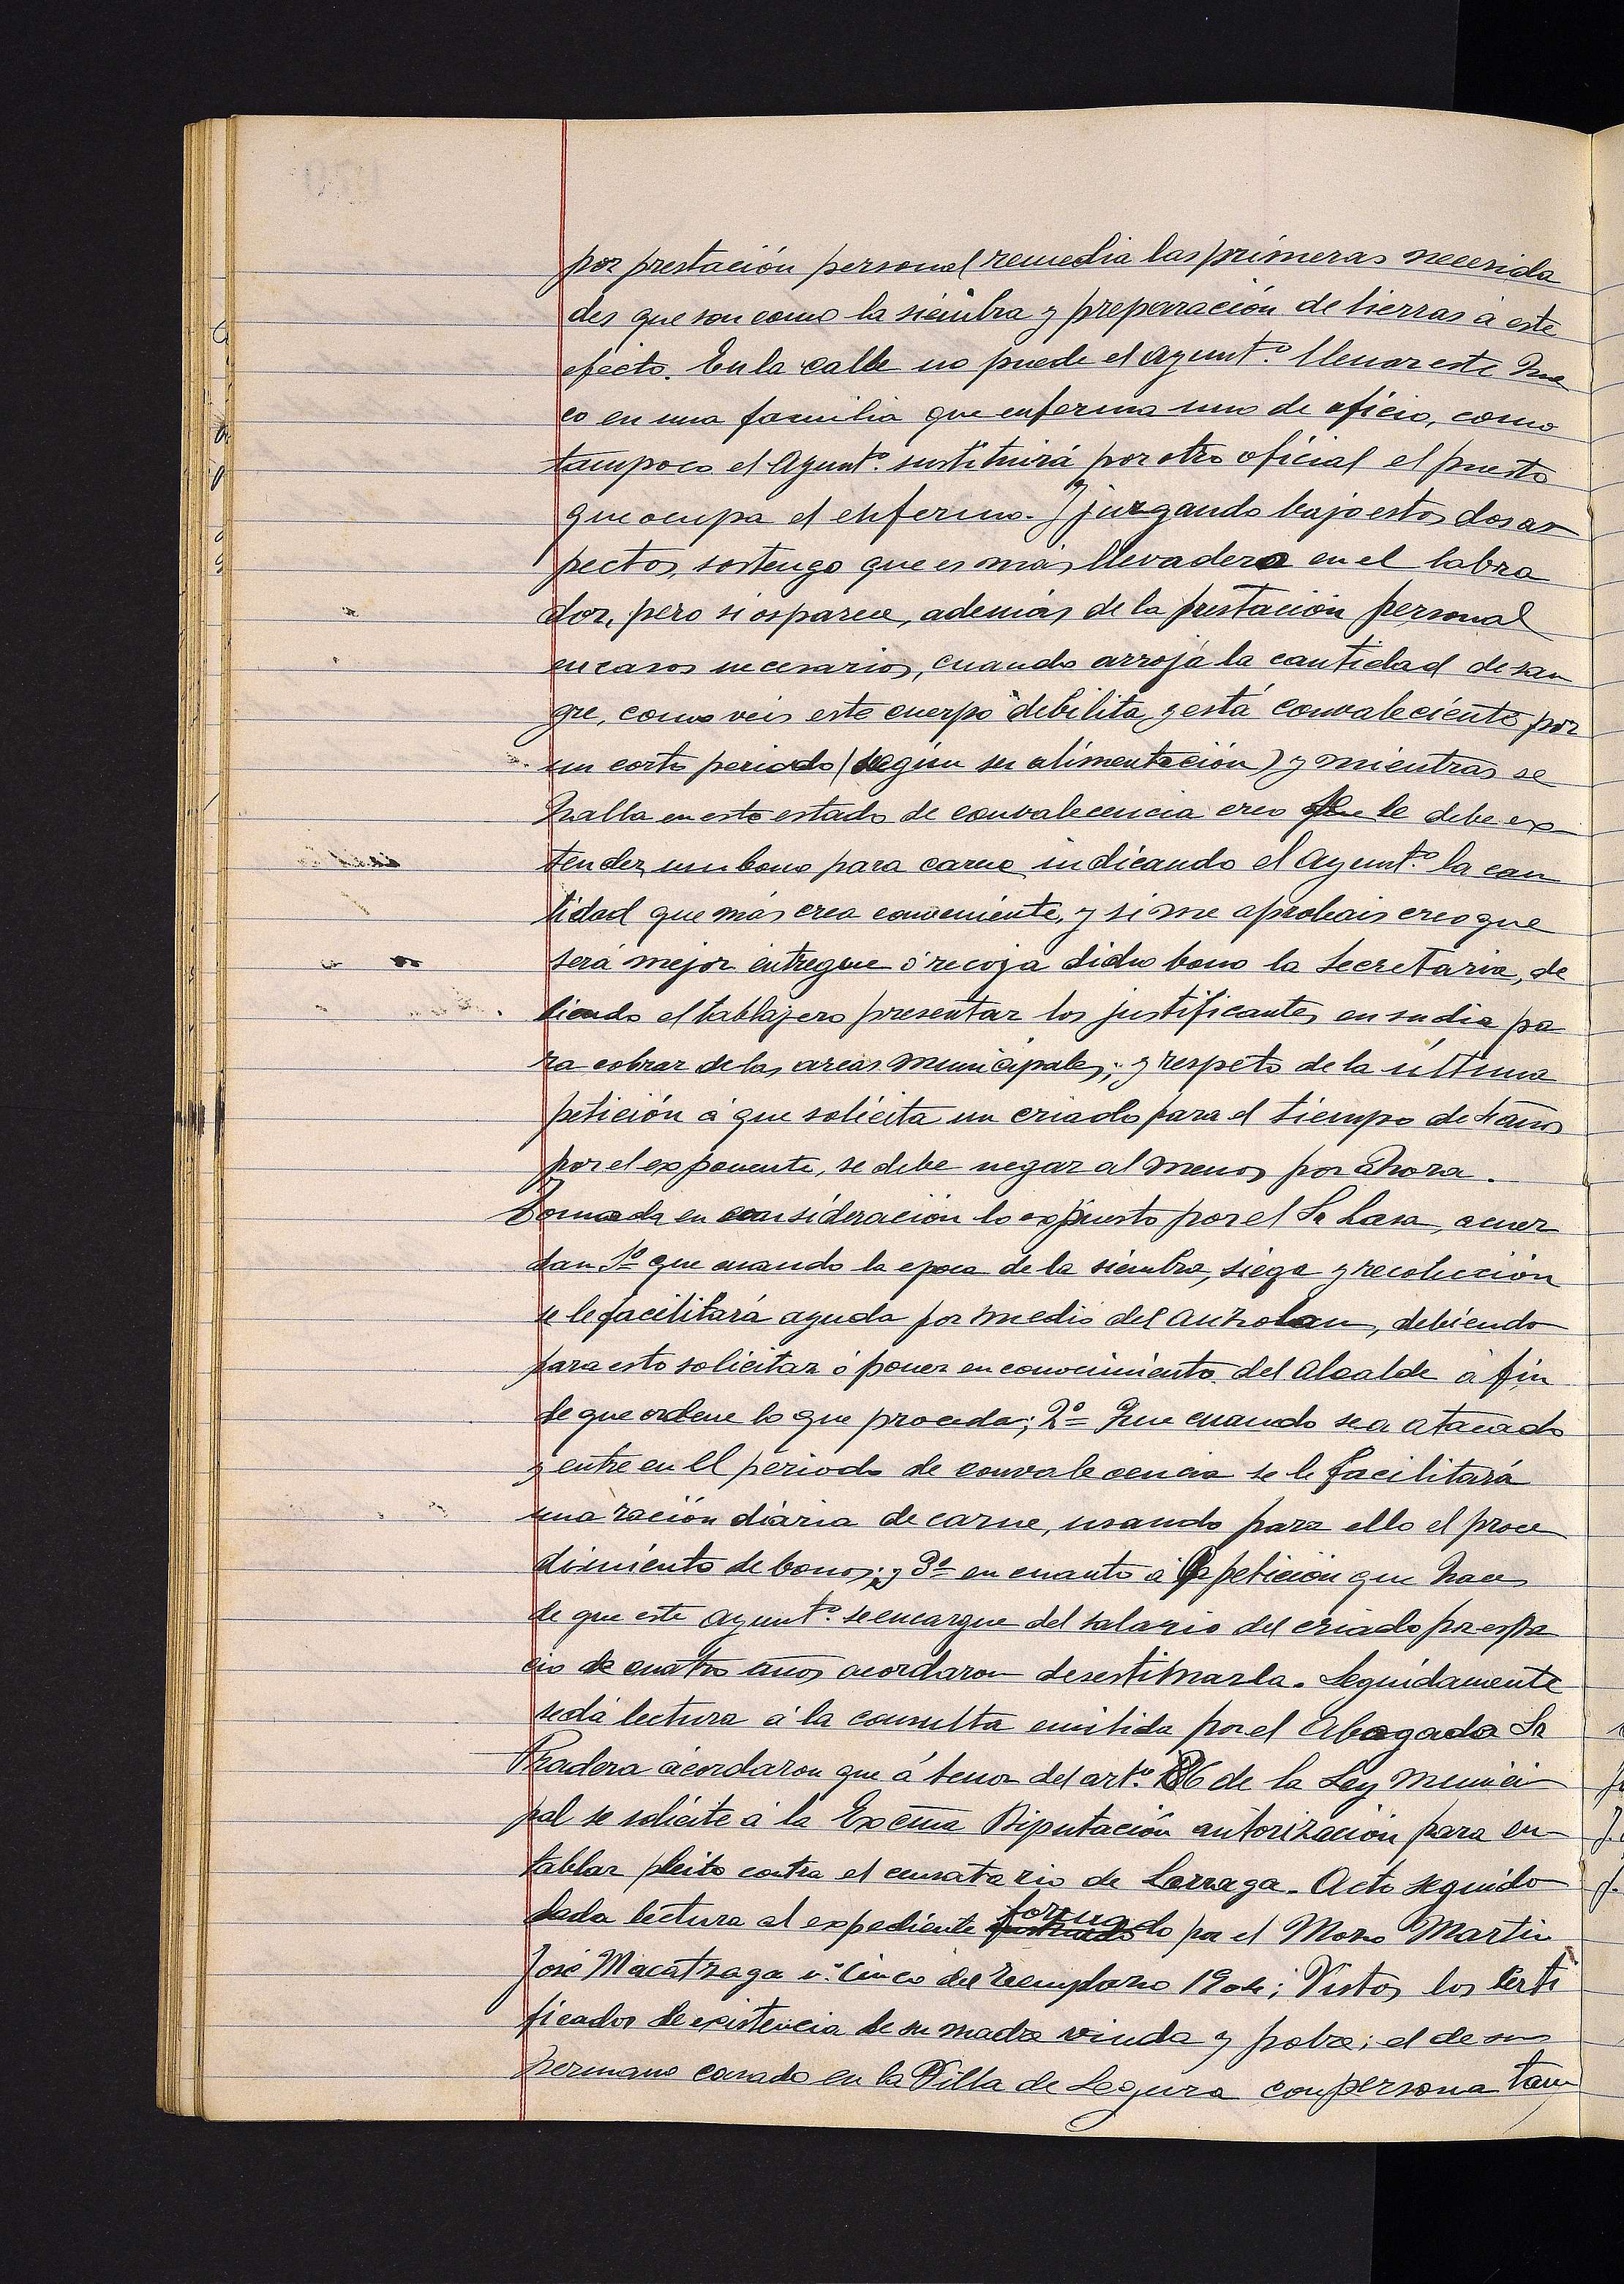 por prestación personal remedia las primeras necesida
des que son como la siembra y preparación de tierras á este
efecto. En la calle no puede el Ayunt.º llenar este hue
co en una familia que enferma uno de oficio, como
tampoco el Ayunt.º sustituirá por otro oficial el puesto
que ocupa el enfermo. Y juzgando bajo estos dos as
pectos, sostengo que es más llevadero en el labra
dor, pero si os parece, además de la prestación personal
en casos necesarios, cuando arroja la cantidad de san
gre, como veis este cuerpo debilita, y está convaleciente por
un corto periodo (según su alimentación) y mientras se
halla en este estado de convalecencia creo que le debe ex
tender un bono para carne indicando el Ayunt.º la can
tidad que más crea conveniente, y si me aprobais creo que
será mejor entregue ó recoja dicho bono la Secretaria, de
biendo el tablajero presentar los justificantes en su dia pa
ra cobrar de las arcas municipales; y respeto de la última
petición á que solicita un criado para el tiempo de 4 años
por el exponente, se debe negar al menos por ahora.
Tomada en consideración lo expuesto por el Sr Lasa, acuer
dan 1º que cuando la epoca de la siembra, siega y recolección
se le facilitará ayuda por medio del auzolan, debiendo
para esto solicitar ó poner en conocimiento del Alcalde á fin
de que ordene lo que proceda; 2º Que cuando sea atacado
y entre en el periodo de convalecencia se le facilitará
una ración diaria de carne, usando para ello el proce
dimiento de bonos; y 3º en cuanto á la petición que hace
de que este ayunt.º se encargue del salario del criado por espa
cio de cuatro años acordaron desestimarla. Seguidamente
se dá lectura á la consulta emitida por el Abogado Sr
Pradera acordaron que á tenor del art.º 86 de la Ley munici
pal se solicite á la Excma Diputación autorización para en
tablar pleito contra el censatario de Larraga. Acto seguido
dada lectura al expediente formado por el Mozo Martin
José Macatzaga nº Cinco del reemplazo 1904; Vistos los certi
ficados de existencia de su madre viuda y pobre; el de su
hermano casado en la Villa de Segura con persona tam